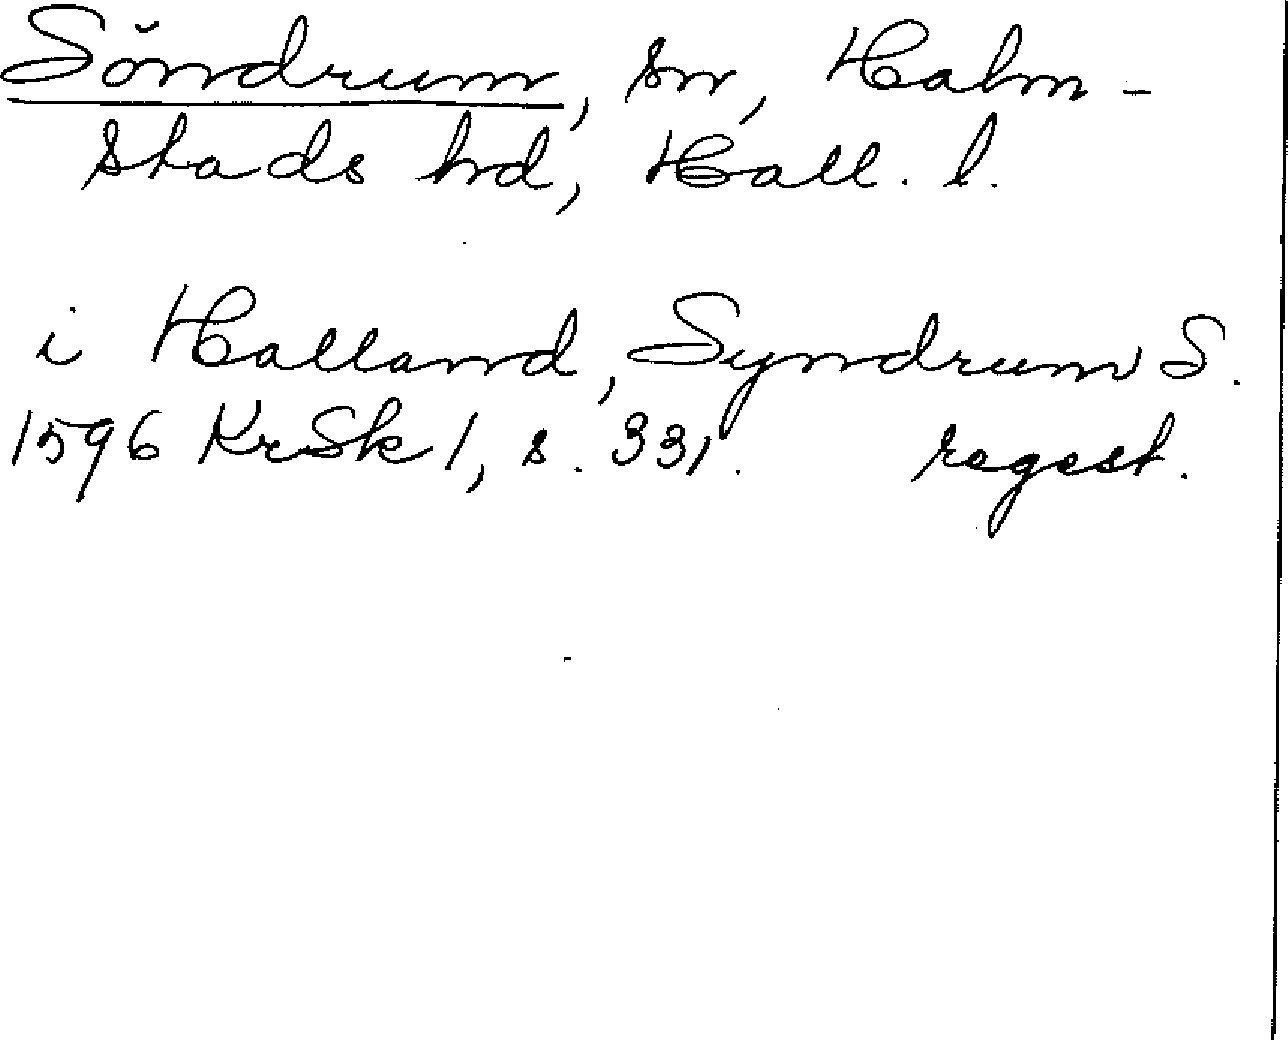 Söndrum, sn, Halm-
stads hd, Hall. l.
i Halland, Syndrum S.
1596 KrSk 1, s. 331. regest.